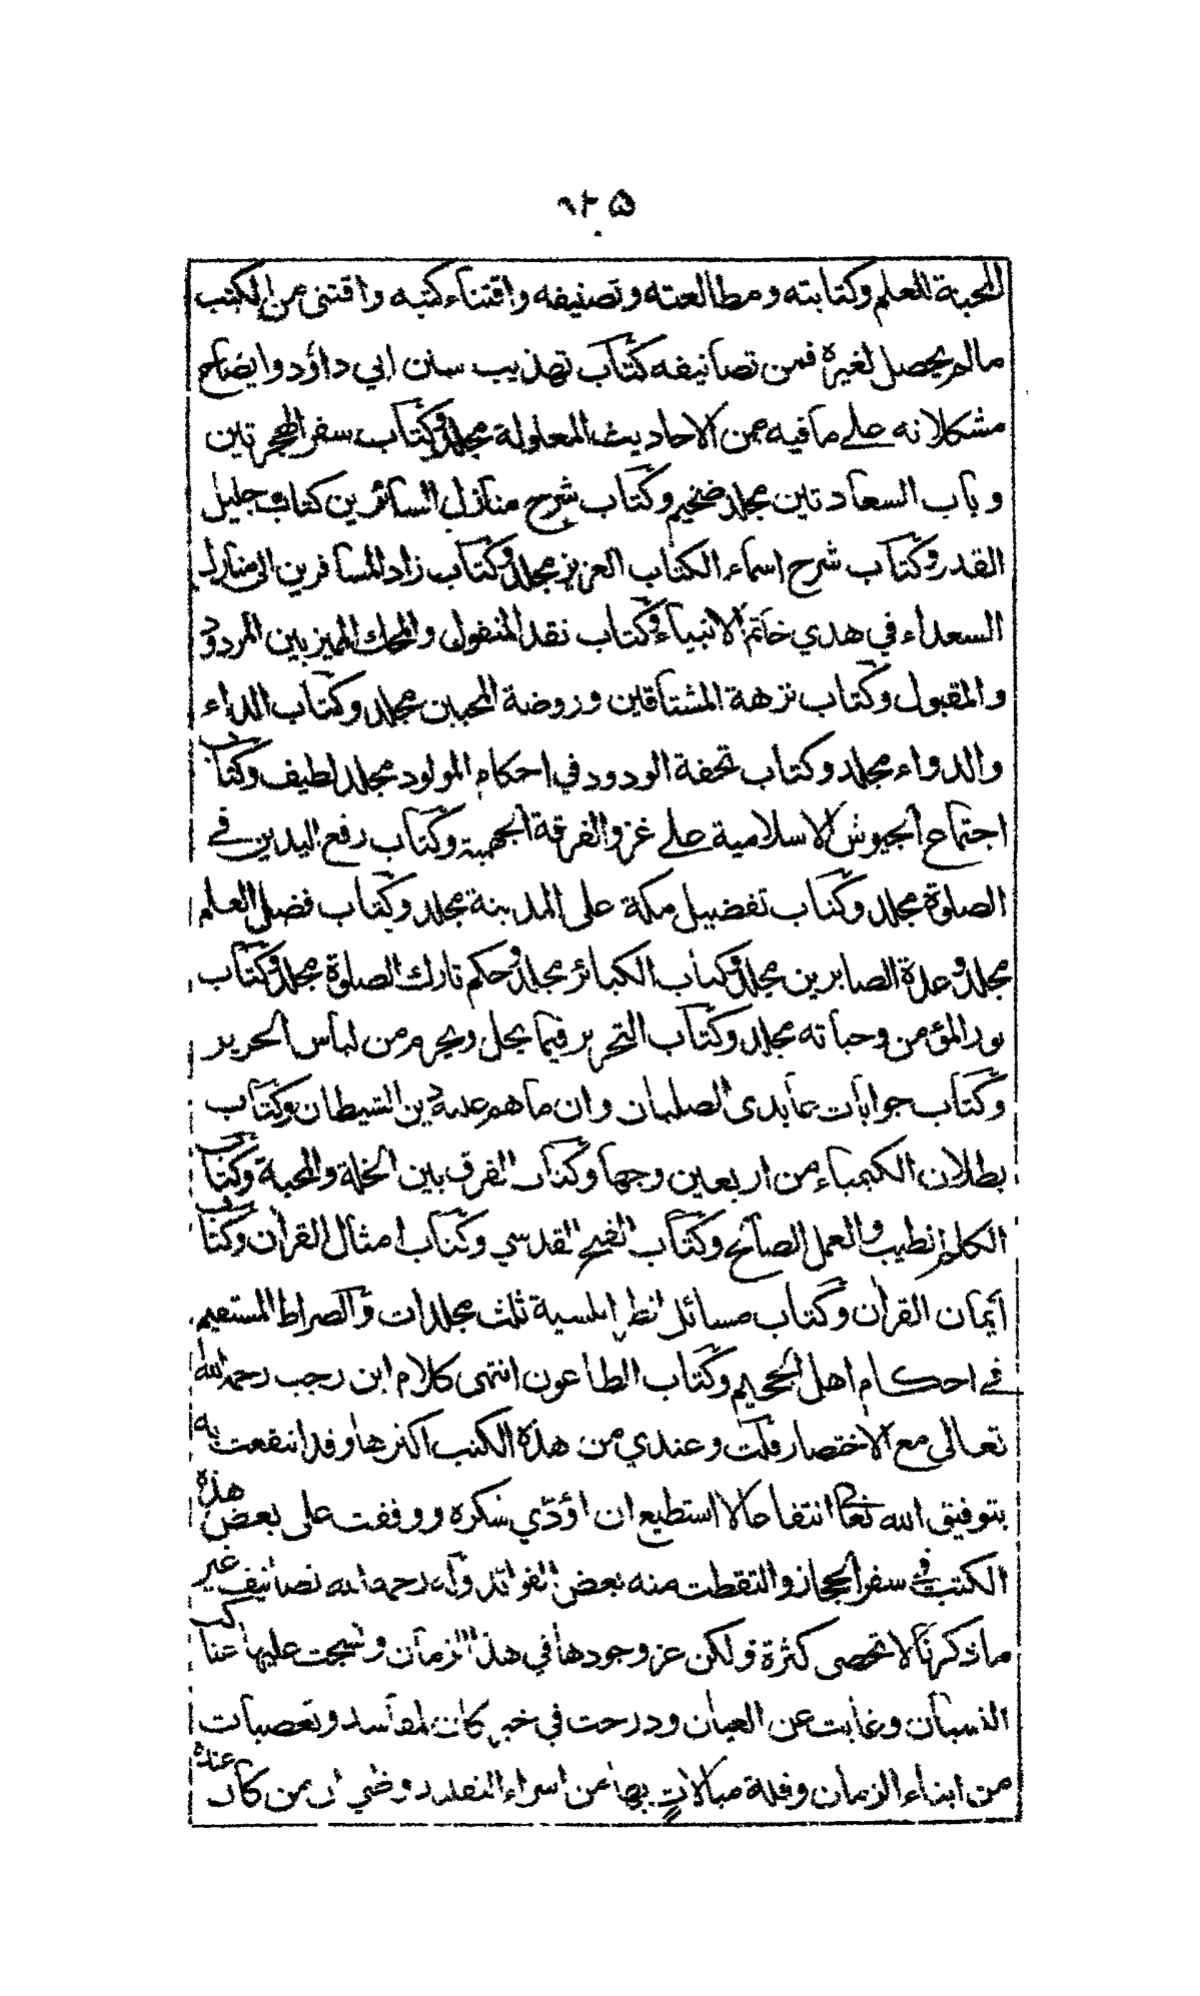 ٩٢٥
المحبة للعلم وكتابته ومطالعته وتصنيفه واقتناء كتبه واقتنى من الكتب
مالم يحصل لغيرة فمن تصانيفه كتاب تهذيب سنن ابي داؤد وايضاح
مشكلاته على ما فيه من الاحاديث المعلولة مجلد وكتاب سفر الهجرتين
وباب السعادتين مجلد ضخيم وكتاب شرح منازل السائرين كتاب جليل
القدر وكتاب شرح اسماء الكتاب العزيز مجلد وكتاب زاد المسافرين الى منازل
السعداء في هدي خاتم الانبياء وكتاب نقد المنقول والمحك المميز بين المردود
والمقبول وكتاب نزهة المشتاقين وروضة المحبين مجلد وكتاب الداء
والدواء مجلد وكتاب تحفة الودود في احكام المولود مجلد لطيف وكتاب
اجتماع الجيوش الاسلامية على غزو الفرقة الجهمية وكتاب رفع اليدين في
الصلوة مجلد وكتاب تفضيل مكة على المدينة مجلد وكتاب فضل العلم
مجلد وعدة الصابرين مجلد وكتاب الكبائر مجلد وحكم تارك الصلوة مجلد وكتاب
نور المؤمن وحياته مجلد وكتاب التحرير فيما يحل ويحرم من لباس الحرير
وكتاب جوابات عابدى الصلبان وان ما هم عليه دين الشيطان وكتاب
بطلان الكيمياء من اربعين وجها وكتاب الفرق بين الخلة والمحبة وكتاب
الكلم الطيب والعمل الصالح وكتاب الفتح القدسي وكتاب امثال القرآن وكتاب
أيمان القرآن وكتاب مسائل الطرابلسية ثلث مجلدات والصراط المستقيم
في احكام اهل الجحيم وكتاب الطاعون انتهى كلام ابن رجب رحمه الله
تعالى مع الاختصار قلت وعندي من هذة الكتب اكثرها وقد انتفعت به
بتوفيق الله تعا انتفاعا لا استطيع ان اؤدي شكره ووقفت على بعض هذة
الكتب في سفر الحجاز والتقطت منه بعض الفوائد وله رحمه الله تصانيف غير
ما ذكرنا لا تحصى كثرة ولكن عز وجودها في هذا الزمان ونسجت عليها عناكب
النسيان وغابت عن العيان ودرجت في خبر كان لمفاسد وتعصبات
من ابناء الزمان وقلة مبالات بها من اسراء التقليد وظني ان من كان عندة